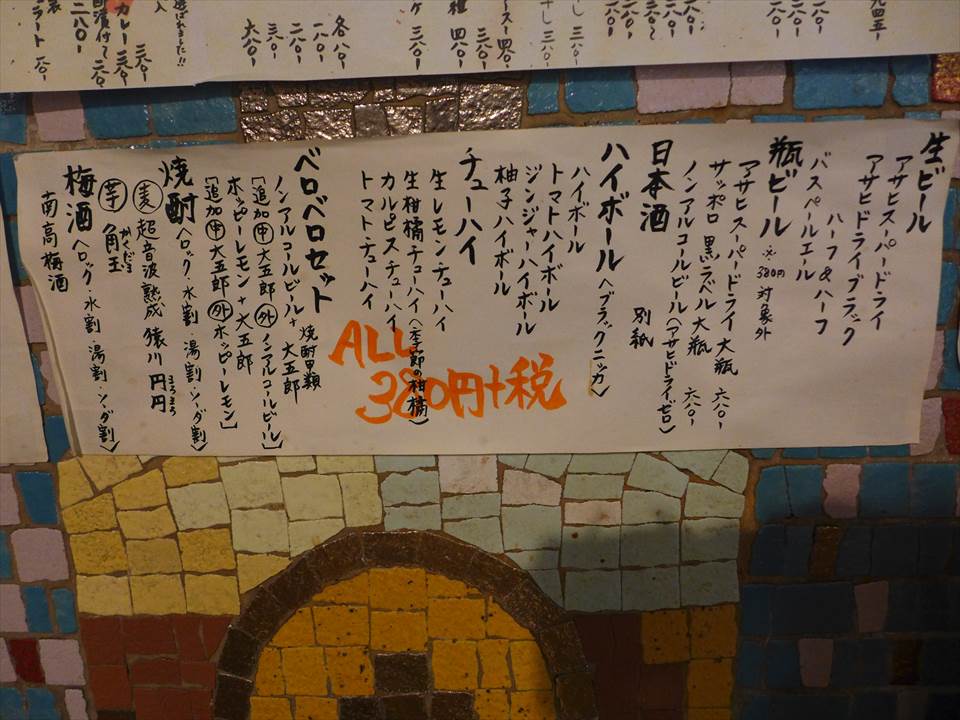 生ビール
アサヒスーパードライ
アサヒドライブラック
ハーフ&ハーフ
バスペールエール
瓶ビール ※380円対象外
アサヒスーパードライ大瓶 六八〇-
サッポロ黒ラベル大瓶 六八〇-
ノンアルコールビール(アサヒドライゼロ)
日本酒 別紙
ハイボール(ブラックニッカ)
ハイボール
トマトハイボール
ジンジャーハイボール
柚子ハイボール
チューハイ
生レモンチューハイ
生柑橘チューハイ(季節の柑橘)
カルピスチューハイ
トマトチューハイ
ALL
380円+税
ベロベロセット 焼酎甲類
ノンアルコールビール+大五郎
[追加 中 大五郎 外 ノンアルコールビール]
ホッピーレモン+大五郎
[追加 中 大五郎 外 ホッピーレモン]
焼酎(ロック・水割・湯割・ソーダ割)
麦 超音波熟成 猿川 円円 まろまろ
芋 角玉 かくだま
梅酒(ロック・水割・湯割・ソーダ割)
南高梅酒